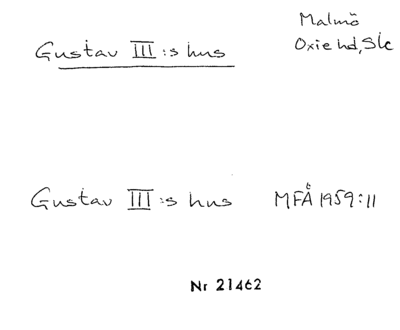 Malmö
Oxie hd, Sk
Gustav III:s hus
Gustav III:s hus MFÅ 1959:11
Nr 21462